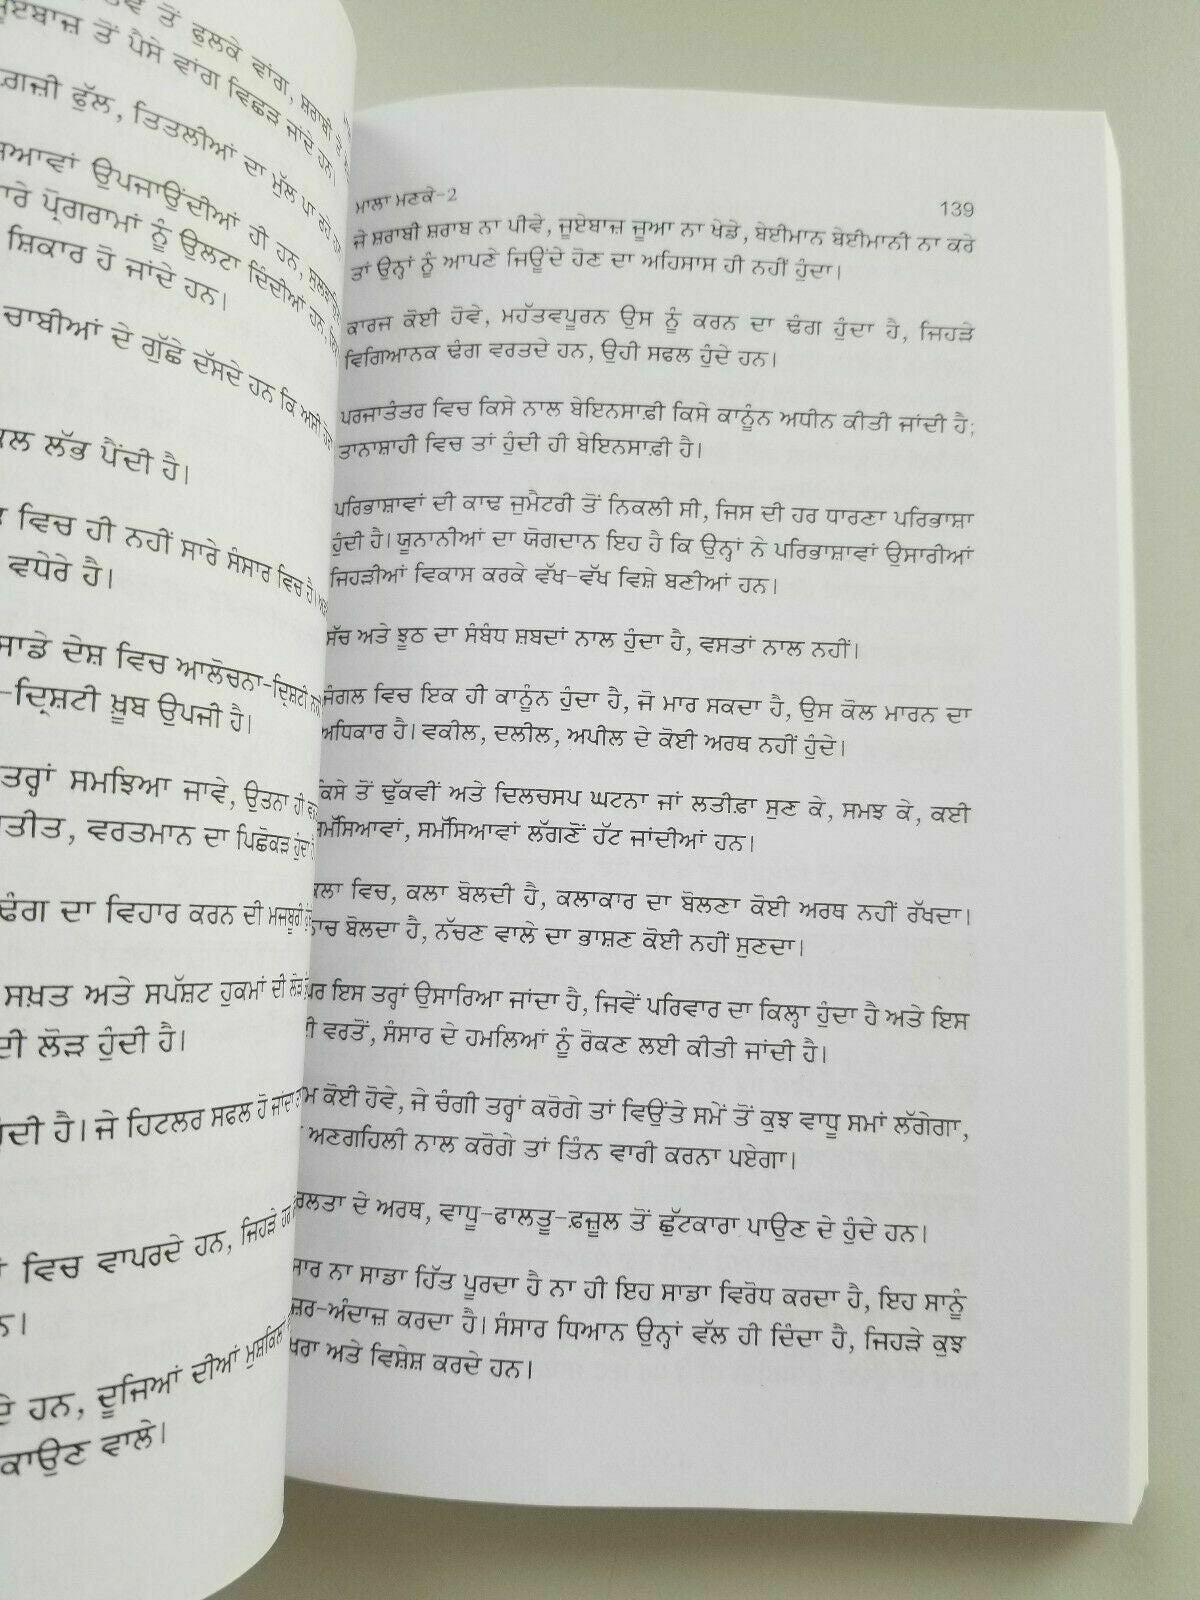 ਤੋਂ ਫੁਲਕੇ ਵਾਂਗ, ਸ਼ਰਾਬੀ
ਤੋਂ ਪੈਸੇ ਵਾਂਗ ਵਿਛੜ ਜਾਂਦੇ ਹਨ।
ਫੁੱਲ, ਤਿਤਲੀਆਂ ਦਾ ਮੁੱਲ ਪਾ
ਉਪਜਾਉਂਦੀਆਂ ਹੀ ਹਨ,
ਪ੍ਰੋਗਰਾਮਾਂ ਨੂੰ ਉਲਟਾ ਦਿੰਦੀਆਂ ਹਨ,
ਸ਼ਿਕਾਰ ਹੋ ਜਾਂਦੇ ਹਨ।
ਚਾਬੀਆਂ ਦੇ ਗੁੱਛੇ ਦੱਸਦੇ ਹਨ ਕਿ ਅਸੀਂ
ਲੱਭ ਪੈਂਦੀ ਹੈ।
ਵਿਚ ਹੀ ਨਹੀਂ ਸਾਰੇ ਸੰਸਾਰ ਵਿਚ ਹੈ।
ਵਧੇਰੇ ਹੈ।
ਸਾਡੇ ਦੇਸ਼ ਵਿਚ ਆਲੋਚਨਾ-ਦ੍ਰਿਸ਼ਟੀ
-ਦ੍ਰਿਸ਼ਟੀ ਖ਼ੂਬ ਉਪਜੀ ਹੈ।
ਤਰ੍ਹਾਂ ਸਮਝਿਆ ਜਾਵੇ, ਉਤਨਾ ਹੀ
ਵਰਤਮਾਨ ਦਾ ਪਿਛੋਕੜ ਹੁੰਦਾ
ਢੰਗ ਦਾ ਵਿਹਾਰ ਕਰਨ ਦੀ ਮਜਬੂਰੀ
ਸਖ਼ਤ ਅਤੇ ਸਪੱਸ਼ਟ ਹੁਕਮਾਂ ਦੀ ਲੋੜ
ਲੋੜ ਹੁੰਦੀ ਹੈ।
ਹੈ। ਜੇ ਹਿਟਲਰ ਸਫਲ ਹੋ ਜਾਂਦਾ
ਵਿਚ ਵਾਪਰਦੇ ਹਨ, ਜਿਹੜੇ ਹਰ
ਹਨ, ਦੂਜਿਆਂ ਦੀਆਂ ਮੁਸ਼ਕਿਲ
ਵਾਲੇ।
ਮਾਲਾ ਮਣਕੇ-2 139
ਜੇ ਸ਼ਰਾਬੀ ਸ਼ਰਾਬ ਨਾ ਪੀਵੇ, ਜੂਏਬਾਜ਼ ਜੂਆ ਨਾ ਖੇਡੇ, ਬੇਈਮਾਨ ਬੇਈਮਾਨੀ ਨਾ ਕਰੇ
ਤਾਂ ਉਨ੍ਹਾਂ ਨੂੰ ਆਪਣੇ ਜਿਊਂਦੇ ਹੋਣ ਦਾ ਅਹਿਸਾਸ ਹੀ ਨਹੀਂ ਹੁੰਦਾ।
ਕਾਰਜ ਕੋਈ ਹੋਵੇ, ਮਹੱਤਵਪੂਰਨ ਉਸ ਨੂੰ ਕਰਨ ਦਾ ਢੰਗ ਹੁੰਦਾ ਹੈ, ਜਿਹੜੇ
ਵਿਗਿਆਨਕ ਢੰਗ ਵਰਤਦੇ ਹਨ, ਉਹੀ ਸਫਲ ਹੁੰਦੇ ਹਨ।
ਪਰਜਾਤੰਤਰ ਵਿਚ ਕਿਸੇ ਨਾਲ ਬੇਇਨਸਾਫ਼ੀ ਕਿਸੇ ਕਾਨੂੰਨ ਅਧੀਨ ਕੀਤੀ ਜਾਂਦੀ ਹੈ;
ਤਾਨਾਸ਼ਾਹੀ ਵਿਚ ਤਾਂ ਹੁੰਦੀ ਹੀ ਬੇਇਨਸਾਫ਼ੀ ਹੈ।
ਪਰਿਭਾਸ਼ਾਵਾਂ ਦੀ ਕਾਢ ਜੁਮੈਟਰੀ ਤੋਂ ਨਿਕਲੀ ਸੀ, ਜਿਸ ਦੀ ਹਰ ਧਾਰਣਾ ਪਰਿਭਾਸ਼ਾ
ਹੁੰਦੀ ਹੈ। ਯੂਨਾਨੀਆਂ ਦਾ ਯੋਗਦਾਨ ਇਹ ਹੈ ਕਿ ਉਨ੍ਹਾਂ ਨੇ ਪਰਿਭਾਸ਼ਾਵਾਂ ਉਸਾਰੀਆਂ
ਜਿਹੜੀਆਂ ਵਿਕਾਸ ਕਰਕੇ ਵੱਖ-ਵੱਖ ਵਿਸ਼ੇ ਬਣੀਆਂ ਹਨ।
ਸੱਚ ਅਤੇ ਝੂਠ ਦਾ ਸੰਬੰਧ ਸ਼ਬਦਾਂ ਨਾਲ ਹੁੰਦਾ ਹੈ, ਵਸਤਾਂ ਨਾਲ ਨਹੀਂ।
ਜੰਗਲ ਵਿਚ ਇਕ ਹੀ ਕਾਨੂੰਨ ਹੁੰਦਾ ਹੈ, ਜੋ ਮਾਰ ਸਕਦਾ ਹੈ, ਉਸ ਕੋਲ ਮਾਰਨ ਦਾ
ਅਧਿਕਾਰ ਹੈ। ਵਕੀਲ, ਦਲੀਲ, ਅਪੀਲ ਦੇ ਕੋਈ ਅਰਥ ਨਹੀਂ ਹੁੰਦੇ।
ਕਿਸੇ ਤੋਂ ਢੁੱਕਵੀਂ ਅਤੇ ਦਿਲਚਸਪ ਘਟਨਾ ਜਾਂ ਲਤੀਫ਼ਾ ਸੁਣ ਕੇ, ਸਮਝ ਕੇ, ਕਈ
ਸਮੱਸਿਆਵਾਂ, ਸਮੱਸਿਆਵਾਂ ਲੱਗਣੋਂ ਹੱਟ ਜਾਂਦੀਆਂ ਹਨ।
ਕਲਾ ਵਿਚ, ਕਲਾ ਬੋਲਦੀ ਹੈ, ਕਲਾਕਾਰ ਦਾ ਬੋਲਣਾ ਕੋਈ ਅਰਥ ਨਹੀਂ ਰੱਖਦਾ।
ਨਾਚ ਬੋਲਦਾ ਹੈ, ਨੱਚਣ ਵਾਲੇ ਦਾ ਭਾਸ਼ਣ ਕੋਈ ਨਹੀਂ ਸੁਣਦਾ।
ਇਸ ਤਰ੍ਹਾਂ ਉਸਾਰਿਆ ਜਾਂਦਾ ਹੈ, ਜਿਵੇਂ ਪਰਿਵਾਰ ਦਾ ਕਿਲ੍ਹਾ ਹੁੰਦਾ ਹੈ ਅਤੇ ਇਸ
ਵਰਤੋਂ, ਸੰਸਾਰ ਦੇ ਹਮਲਿਆਂ ਨੂੰ ਰੋਕਣ ਲਈ ਕੀਤੀ ਜਾਂਦੀ ਹੈ।
ਕੋਈ ਹੋਵੇ, ਜੇ ਚੰਗੀ ਤਰ੍ਹਾਂ ਕਰੋਗੇ ਤਾਂ ਵਿਉਂਤੇ ਸਮੇਂ ਤੋਂ ਕੁਝ ਵਾਧੂ ਸਮਾਂ ਲੱਗੇਗਾ,
ਅਣਗਹਿਲੀ ਨਾਲ ਕਰੋਗੇ ਤਾਂ ਤਿੰਨ ਵਾਰੀ ਕਰਨਾ ਪਏਗਾ।
ਦੇ ਅਰਥ, ਵਾਧੂ-ਫਾਲਤੂ-ਫ਼ਜ਼ੂਲ ਤੋਂ ਛੁੱਟਕਾਰਾ ਪਾਉਣ ਦੇ ਹੁੰਦੇ ਹਨ।
ਨਾ ਸਾਡਾ ਹਿੱਤ ਪੂਰਦਾ ਹੈ ਨਾ ਹੀ ਇਹ ਸਾਡਾ ਵਿਰੋਧ ਕਰਦਾ ਹੈ, ਇਹ ਸਾਨੂੰ
-ਅੰਦਾਜ਼ ਕਰਦਾ ਹੈ। ਸੰਸਾਰ ਧਿਆਨ ਉਨ੍ਹਾਂ ਵੱਲ ਹੀ ਦਿੰਦਾ ਹੈ, ਜਿਹੜੇ ਕੁਝ
ਅਤੇ ਵਿਸ਼ੇਸ਼ ਕਰਦੇ ਹਨ।